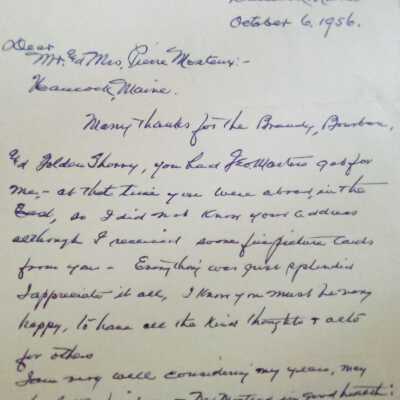 October 6, 1956.
Dear
Mr. Ed Mrs. Pierre Monteux:-
Hancock, Maine.
Many thanks for the Brandy, Bourbon,
Ed Golden Sherry, you had Geo Martin get for
me,- at that time you were abroad, in the
so I did not know your address
although I received some fine picture cards
from you - Everything was just splendid
I appreciate it all, I know you must be very
happy, to have all the kind thoughts & acts
for others
I am very well considering my years, may
in good health: